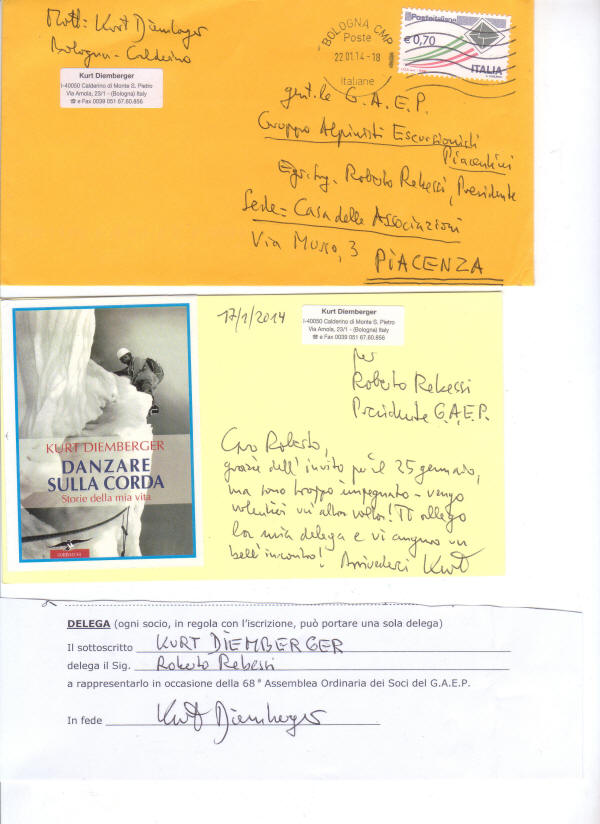 Mitt: Kurt Diemberger
Bologna - Calderino
Kurt Diemberger
I-40050 Calderino di Monte S. Pietro
Via Amola, 23/1 - (Bologna) Italy
☎ e Fax 0039 051 67.60.856
BOLOGNA CMP
Poste
22.01.14-18
Italiane
Posteitaliane
€0,70
ITALIA
gent.le G.A.E.P.
Gruppo Alpinisti Escursionisti
Piacentini
Egr. Ing. Roberto Rebessi, Presidente
Sede = Casa delle Associazioni
Via Musso, 3
PIACENZA
17/1/2014
Kurt Diemberger
I-40050 Calderino di Monte S. Pietro
Via Amola, 23/1 - (Bologna) Italy
☎ e Fax 0039 051 67.60.856
per
Roberto Rebessi
Presidente G.A.E.P.
Caro Roberto,
grazie dell'invito per il 25 gennaio,
ma sono troppo impegnato - vengo
volentieri un'altra volta! Ti allego
la mia delega e vi auguro un
bell'incontro! Arrivederci Kurt
KURT DIEMBERGER
DANZARE
SULLA CORDA
Storie della mia vita
CORBACCIO
DELEGA (ogni socio, in regola con l'iscrizione, può portare una sola delega)
Il sottoscritto KURT DIEMBERGER
delega il Sig. Roberto Rebessi
a rappresentarlo in occasione della 68ª Assemblea Ordinaria dei Soci del G.A.E.P.
In fede Kurt Diemberger